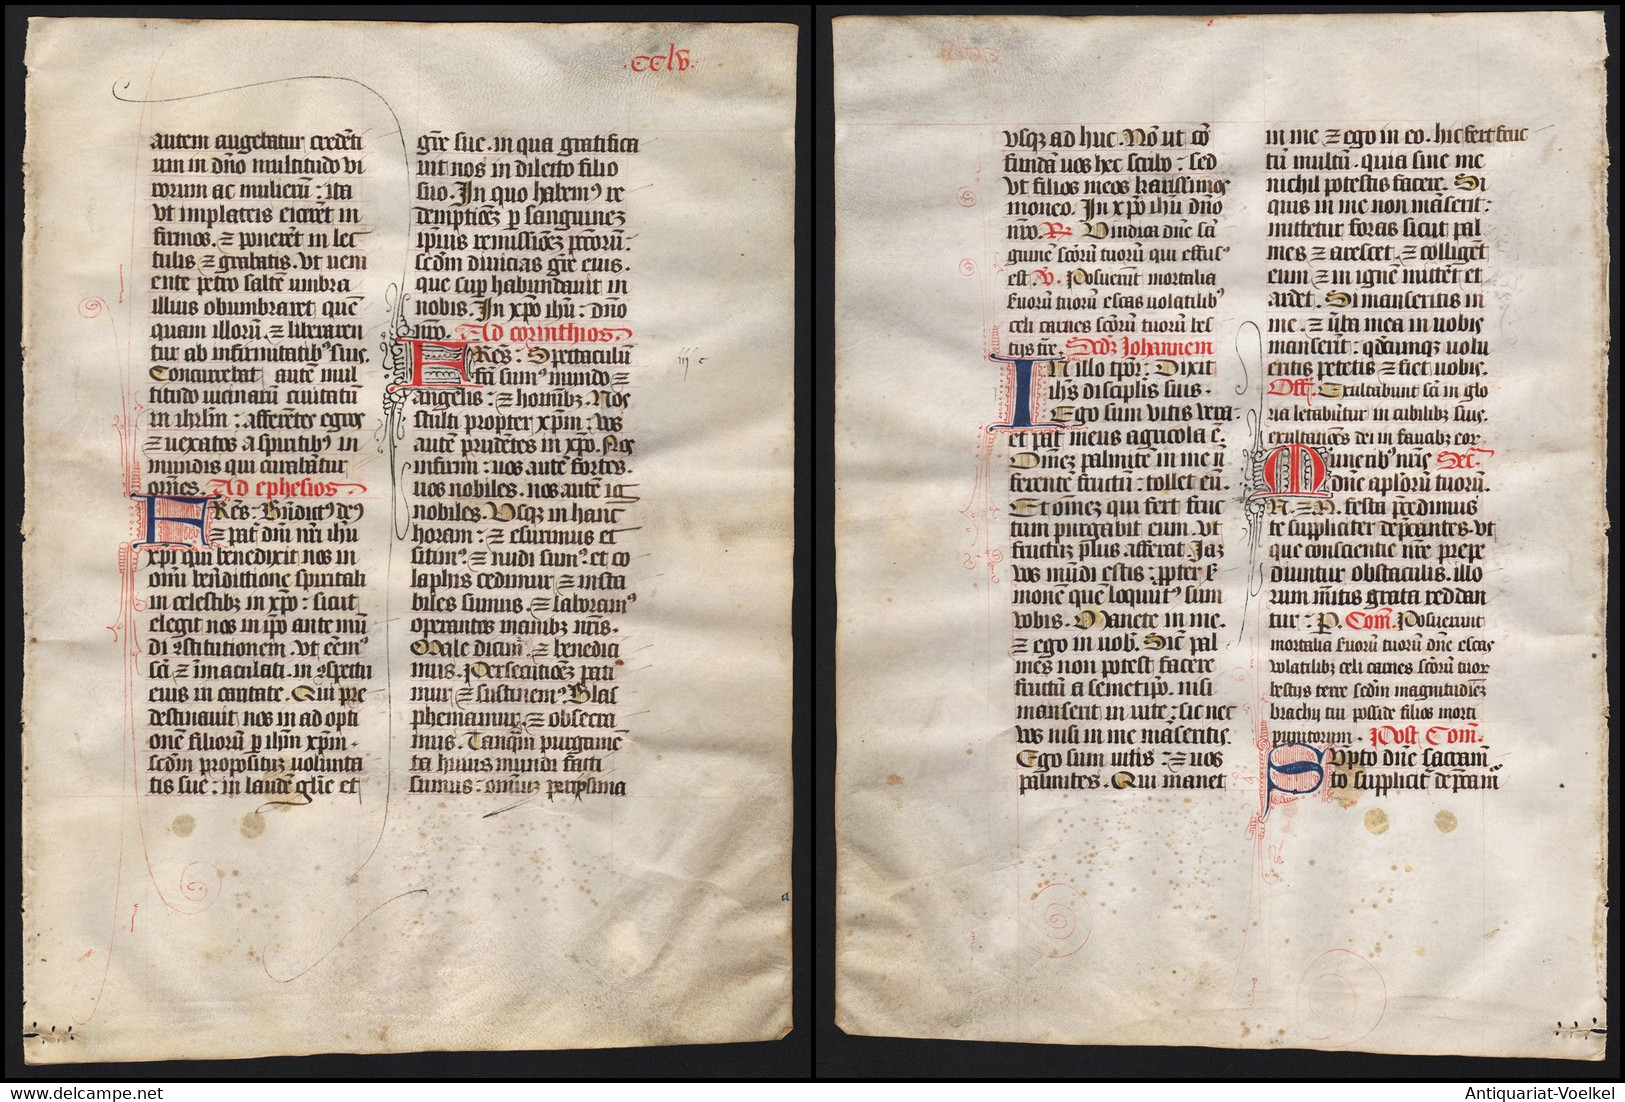 .CClv.
autem augebatur credeti
um in dño multitudo vi
rorum ac mulierū: ita
vt in plateis eicerēt in
firmos. ⁊ ponerēt in lec
tulis ⁊ grabatis. vt veni
ente petro saltē umbra
illius obumbraret quē
quam illorū. ⁊ liberaren
tur ab infirmitatibꝰ suis.
Concurrebat autē mul
titudo uicinarū civitatū
in ihrlm̄: afferētes egros
⁊ uexatos a spiritibꝰ in
mundis qui curabātur
om̄es. Ad ephesios.
FRēs: Bn̄dictꝰ deꝰ
⁊ pat dn̄i nr̄i ihū
xp̄i qui benedixit nos in
om̄i ben̄dittione spiritali
in celestibꝫ in xp̄o: sicut
elegit nos in ip̄o ante mū
di ꝯstitutionem. vt eēmꝰ
sc̄i ⁊ īmaculati. in ꝯspectu
eius in caritate. Qui pre
destinavit nos in ad opti
onē filiorū p ihm̄ xp̄m.
scd̄m propositū volunta
tis sue: in laudē glīe et
grē sue. in qua gratifica
uit nos in dilecto filio
suo. In quo habemꝰ re
demptiōeꝫ p sanguineꝫ
ip̄ius remissiōeꝫ pctorū:
scd̄m divicias grē eius.
que sup habundavit in
nobis. In xp̄o ihū: dn̄o
nr̄o. Ad corinthios.
FRēs: Spectaculū
fc̄ti sumꝰ mundo ⁊
angelis: ⁊ hom̄ibꝫ. Nos
stulti propter xp̄m: vos
autē prudētes in xp̄o. Nos
infirmi: uos autē fortes.
uos nobiles. nos autē ig
nobiles. Usqꝫ in hanc
horam: ⁊ esurimus et
sitimꝰ: ⁊ nudi sumꝰ: et co
laphis cedimur ⁊ insta
biles sumus. ⁊ laboramꝰ
operantes manibꝫ nr̄is.
Male dicim̄. ⁊ benedici
mus. Persecutiōeꝫ pati
mur ⁊ sustinemꝰ. Blas
phemamur ⁊ obsecra
mus. Tanqm̄ purgamē
ta huius mundi facti
sumus: omniū peripsima
vsqꝫ ad huc. Nō ut cō
fundā uos hec scribo: sed
vt filios meos karissimos
moneo. In xp̄o ihū dn̄o
nr̄o. R Vindica dn̄e sā
guinē scōrū tuorū qui effusꝰ
est. V. Posuerūt mortalia
suorū tuorū escas uolatilibꝰ
celi carnes scōrū tuorū bes
tijs tr̄e. Scd̄ꝫ Johannem
IN illo tp̄or: Dixit
ihs̄ discip̄lis suis.
Ego sum vitis vera.
et pat̄ meus agricola ē.
Omēꝫ palmitē in me n̄
ferente fructū: tollet eū.
Et om̄eꝫ qui fert fruc
tum purgabit eum. vt
fructū plus afferat. Jaꝫ
vos mūdi estis: ꝓpter ser
monē quē loquutꝰ sum
vobis. Manete in me.
⁊ ego in vob̄. Sic̄ pal
mes non potest facere
fructū a semetip̄o. nisi
manserit in vite: sic nec
vos nisi in me māseritis.
Ego sum uitis: ⁊ uos
palmites. Qui manet
in me ⁊ ego in eo. hic fert fruc
tū multū. quia sine me
nichil potestis facere. Si
quis in me non māserit:
mittetur foras sicut pal
mes ⁊ arescet. ⁊ colligent
eum ⁊ in ignē mittēt et
ardet. Si manseritis in
me. ⁊ v̄ba mea in uobis
manserit: qdcumqꝫ volu
eritis petetis ⁊ fiet uobis.
Off. Exultabunt sc̄i in glo
ria letabūtur in cubilibꝫ suis.
exultatiōes dei in faucibꝫ eor
Muneribꝰ nr̄is Sec̄.
dn̄e apl̄orū tuorū.
N. ⁊ N. festa p̄cedimus
te suppliciter dep̄cantes. vt
que conscientie nr̄e prepe
diuntur obstaculis. illo
rum m̄itis grata reddan
tur: P. Com̄. Posuerunt
mortalia suorū tuorū dn̄e escas
volatilibꝫ celi carnes scōrū tuor
bestijs terre scd̄m magnitudinēꝫ
brachij tui posside filios morti
punitorum. Post Com̄.
Sūpto dn̄e sacram̄
to supplicit̄ dep̄cam̄
Antiquariat-Voelkel